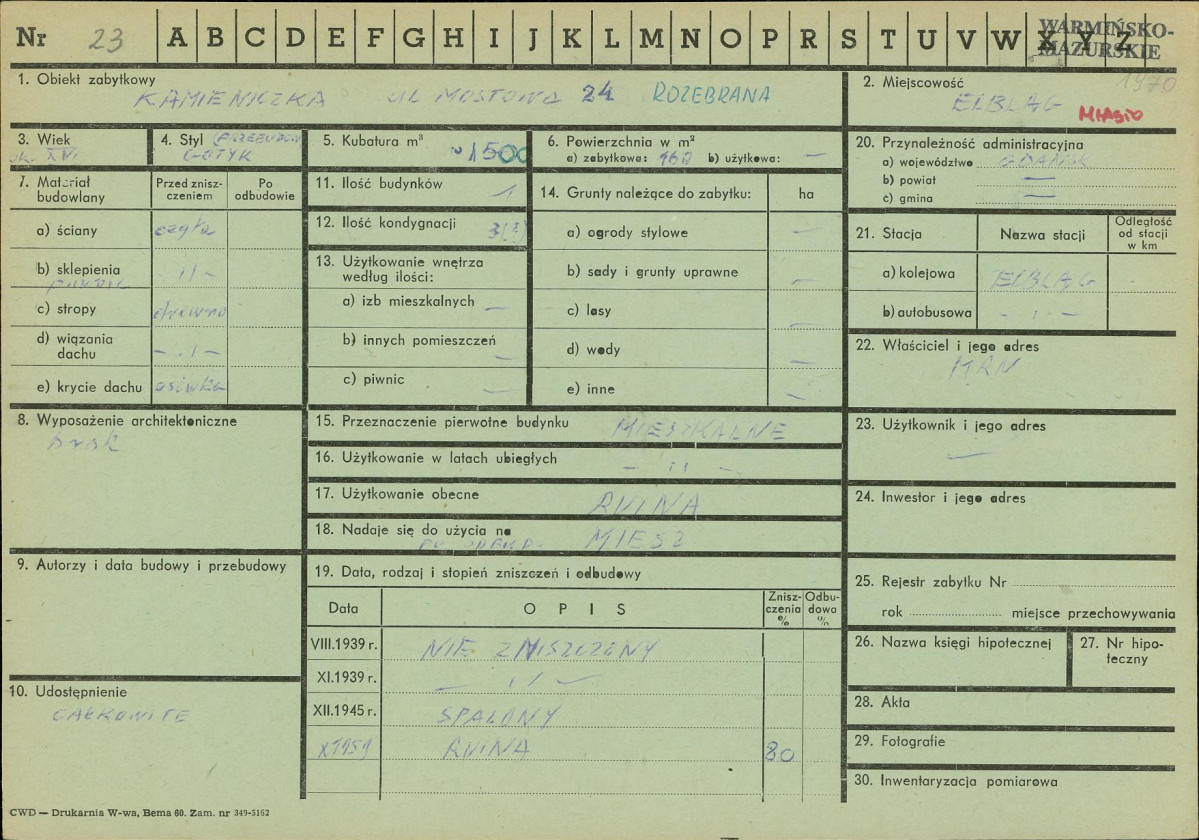 Nr 23 A B C D E F G H I J K L M N O P R S T U V W X Y Z
WARMIŃSKO-
MAZURSKIE
1. Obiekt zabytkowy
KAMIENICZKA UL MOSTOWA 24 ROZEBRANA
2. Miejscowość 1970
ELBLĄG MIASTO
3. Wiek
XVI
4. Styl
GOTYK
5. Kubatura m³
~1500
6. Powierzchnia w m²
a) zabytkowa: 160 b) użytkowa: —
7. Materiał budowlany
Przed zniszczeniem
Po odbudowie
a) ściany cegła
b) sklepienia -"-
c) stropy drewno
d) wiązania dachu -"-
e) krycie dachu
8. Wyposażenie architektoniczne
brak
9. Autorzy i data budowy i przebudowy
10. Udostępnienie
CAŁKOWITE
11. Ilość budynków 1
12. Ilość kondygnacji 3(3)
13. Użytkowanie wnętrza według ilości:
a) izb mieszkalnych —
b) innych pomieszczeń —
c) piwnic —
14. Grunty należące do zabytku: ha
a) ogrody stylowe —
b) sady i grunty uprawne —
c) lasy —
d) wody —
e) inne —
15. Przeznaczenie pierwotne budynku MIESZKALNE
16. Użytkowanie w latach ubiegłych -"-
17. Użytkowanie obecne RUINA
18. Nadaje się do użycia na MIESZ
19. Data, rodzaj i stopień zniszczeń i odbudowy
Data OPIS Zniszczenia % Odbudowa %
VIII.1939 r. NIE ZNISZCZONY
XI.1939 r. -"-
XII.1945 r. SPALONY
X 1959 RUINA 80
20. Przynależność administracyjna
a) województwo GDAŃSK
b) powiat —
c) gmina —
21. Stacja
Nazwa stacji
Odległość od stacji w km
a) kolejowa ELBLĄG -
b) autobusowa -"-
22. Właściciel i jego adres
23. Użytkownik i jego adres
—
24. Inwestor i jego adres
25. Rejestr zabytku Nr
rok miejsce przechowywania
26. Nazwa księgi hipotecznej
27. Nr hipoteczny
28. Akta
29. Fotografie
30. Inwentaryzacja pomiarowa
CWD — Drukarnia W-wa, Bema 60. Zam. nr 349-5162